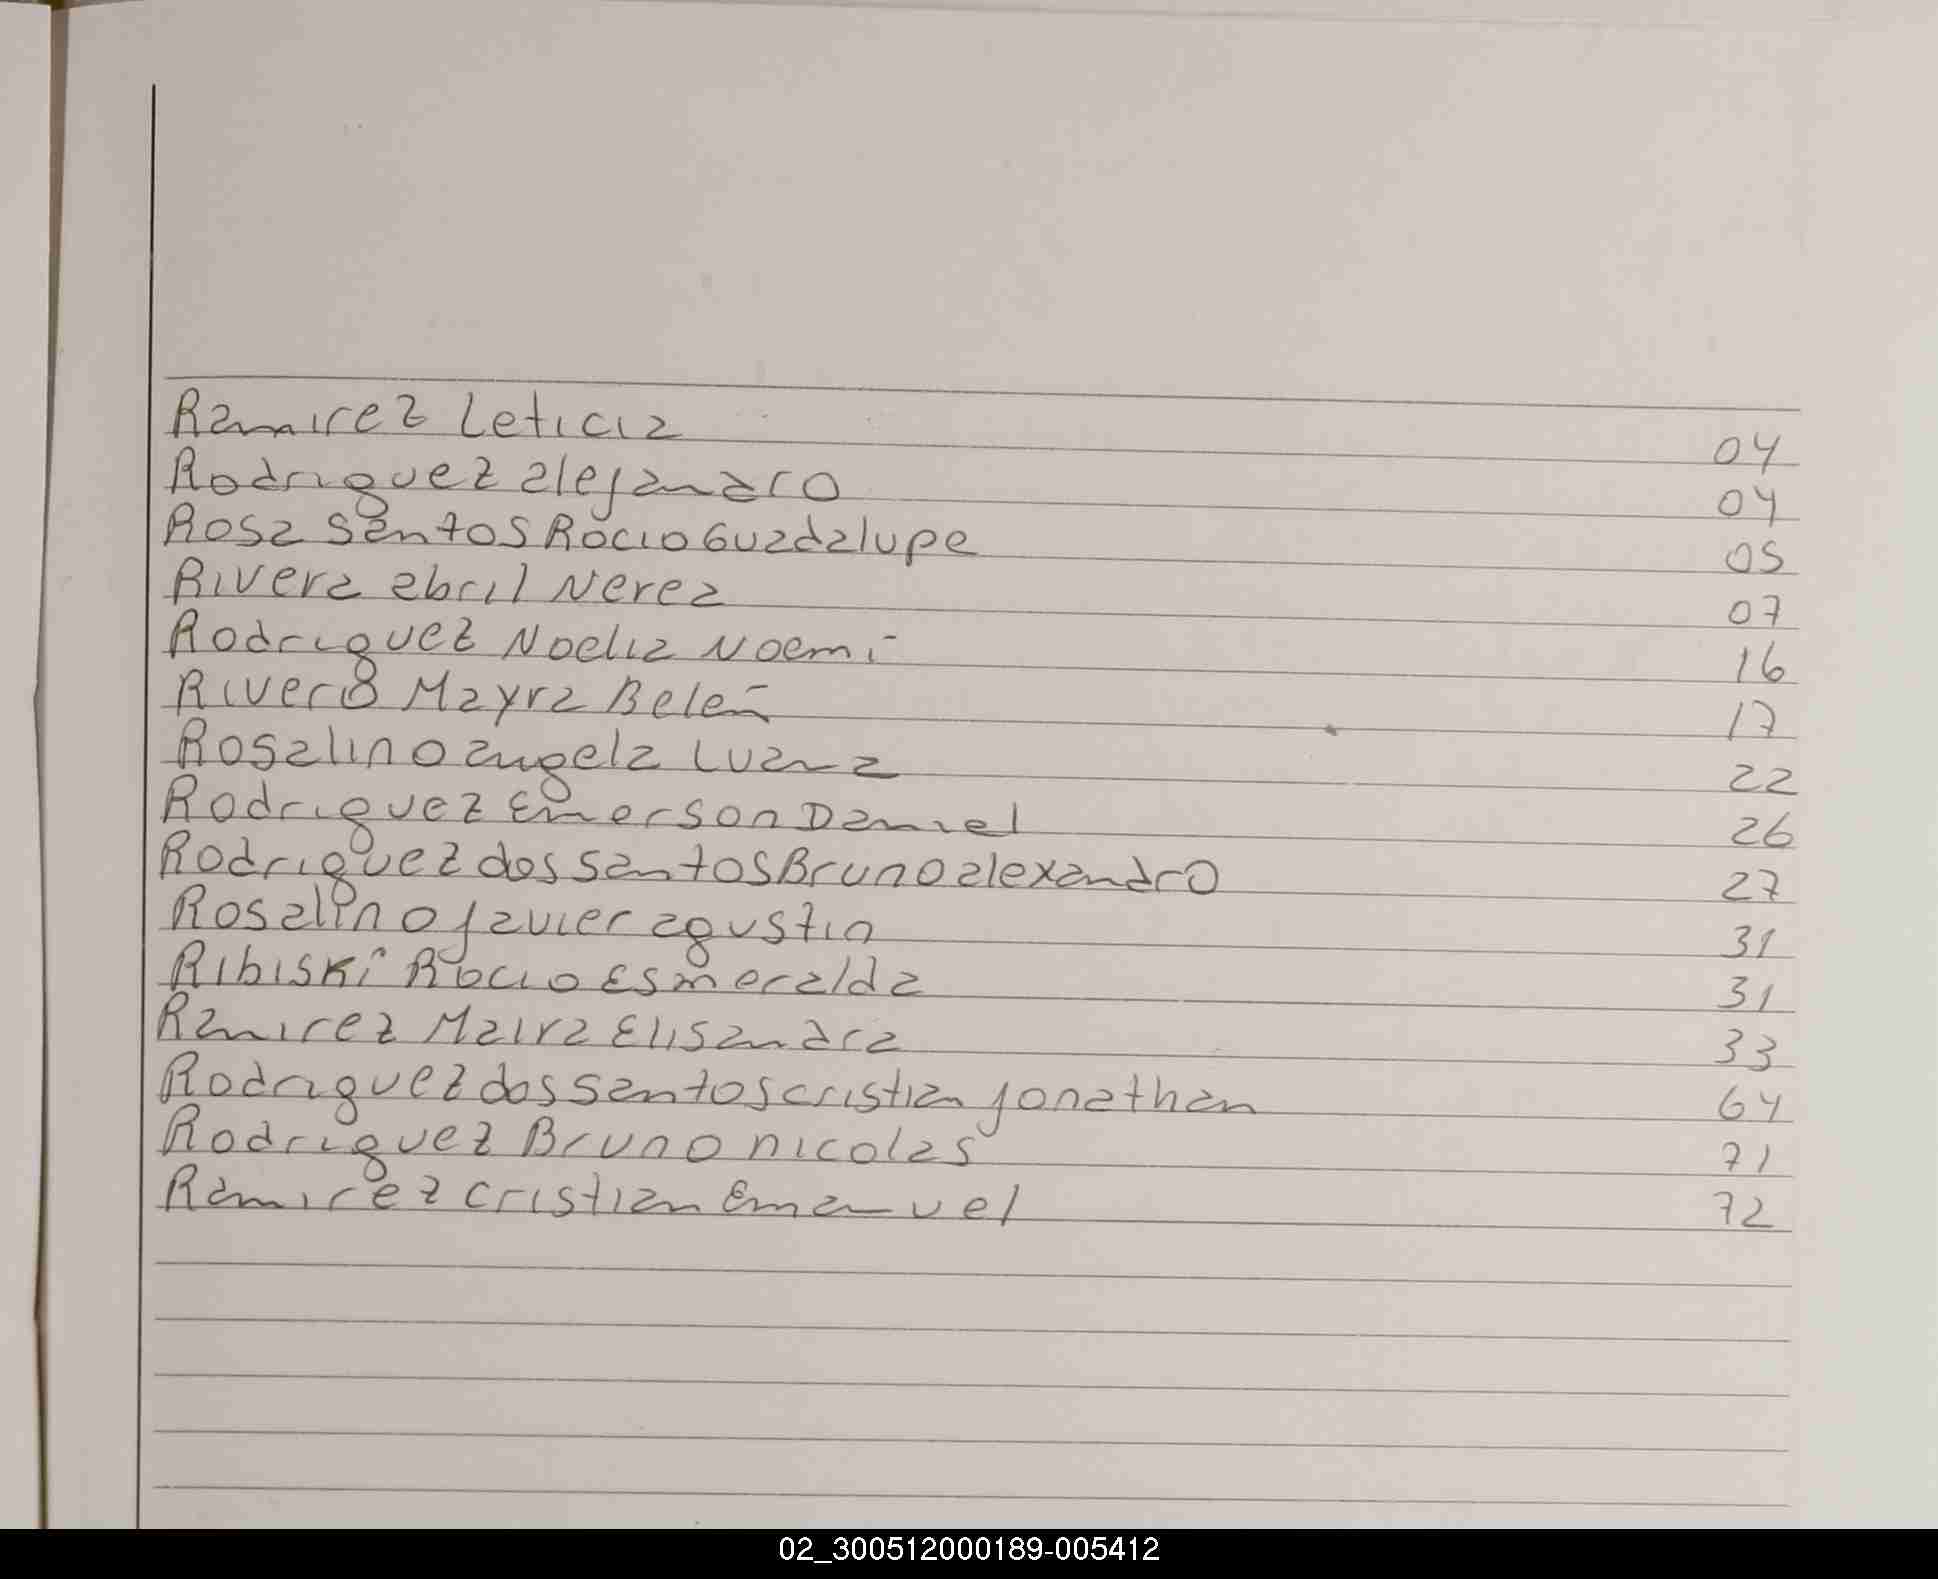 Ramirez Leticia 04
Rodriguez alejandro 04
Rosa Santos Rocio Guadalupe 05
Rivera abril Nerea 07
Rodriguez Noelia Noemi 16
Rivero Mayra Belén 17
Rosalino angela Luana 22
Rodriguez Emerson Daniel 26
Rodriguez dos Santos Bruno alexandro 27
Rosalino Javier agustin 31
Ribiski Rocio Esmeralda 31
Ramirez Maira Elisandra 33
Rodriguez dos Santos cristian jonathan 64
Rodriguez Bruno nicolas 71
Ramirez cristian Emanuel 72
02_300512000189-005412